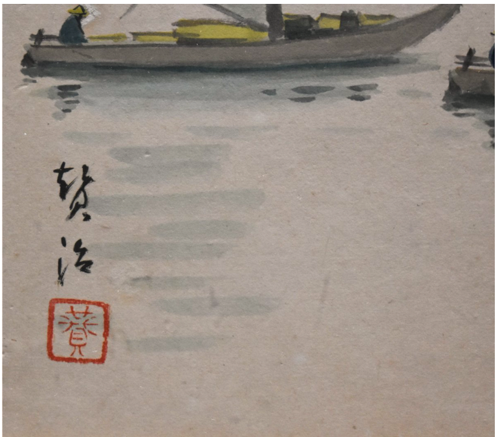 賛治
賛